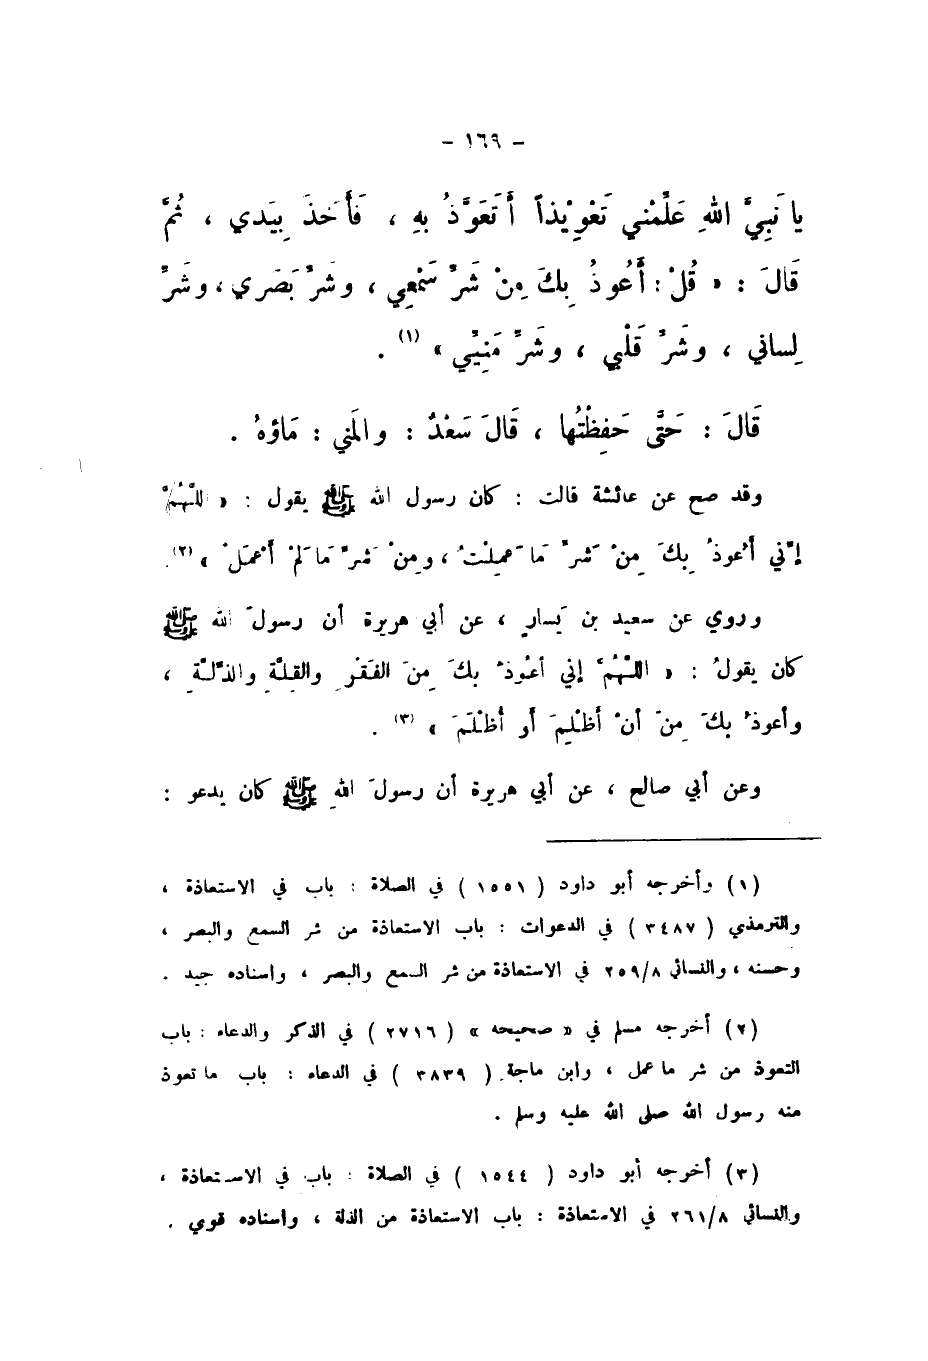 - ١٦٩ -
يا نَبِيَّ اللهِ عَلِّمْني تَعْوِيْذاً أَتَعَوَّذُ بِهِ ، فَأَخَذَ بِيَدي ، ثُمَّ
قَالَ : « قُلْ : أَعُوذُ بِكَ مِنْ شَرِّ سَمْعِي ، وشَرِّ بَصَري ، وشَرِّ
لِساني ، وشَرِّ قَلْبي ، وشَرِّ مَنِيِّي » (١) .
قَالَ : حَتَّى حَفِظْتُها ، قَالَ سَعْدٌ : والمَني : مَاؤهُ .
وقد صح عن عائشة قالت : كان رسول الله ﷺ يقول : « اللَّهُمَّ
إنّني أَعوذُ بِكَ مِنْ شَرِّ مَا عَمِلْتُ ، ومِنْ شَرِّ مَا لَمْ أَعْمَلْ » (٢) .
وروي عن سعيد بن يَسارٍ ، عن أبي هريرة أن رسولَ الله ﷺ
كان يقولُ : « اللَّهُمَّ إني أعُوذُ بِكَ مِنَ الفَقْرِ والقِلَّةِ والذِّلَّةِ ،
وأعوذُ بكَ مِنَ أنْ أَظْلِمَ أَو أُظْلَمَ » (٣) .
وعن أبي صالح ، عن أبي هريرة أن رسولَ اللهِ ﷺ كان يدعو :
(١) وأخرجه أبو داود ( ١٥٥١ ) في الصلاة : باب في الاستعاذة ،
والترمذي ( ٣٤٨٧ ) في الدعوات : باب الاستعاذة من شر السمع والبصر ،
وحسنه ، والنسائي ٢٥٩/٨ في الاستعاذة من شر السمع والبصر ، واسناده جيد .
(٢) أخرجه مسلم في « صحيحه » ( ٢٧١٦ ) في الذكر والدعاء : باب
التعوذ من شر ما عمل ، وابن ماجة ( ٣٨٣٩ ) في الدعاء : باب ما تعوذ
منه رسول الله صلى الله عليه وسلم .
(٣) أخرجه أبو داود ( ١٥٤٤ ) في الصلاة : باب في الاستعاذة ،
والنسائي ٢٦١/٨ في الاستعاذة : باب الاستعاذة من الذلة ، واسناده قوي .